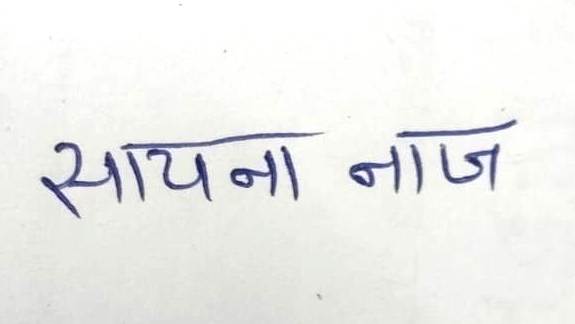 सायना नाज